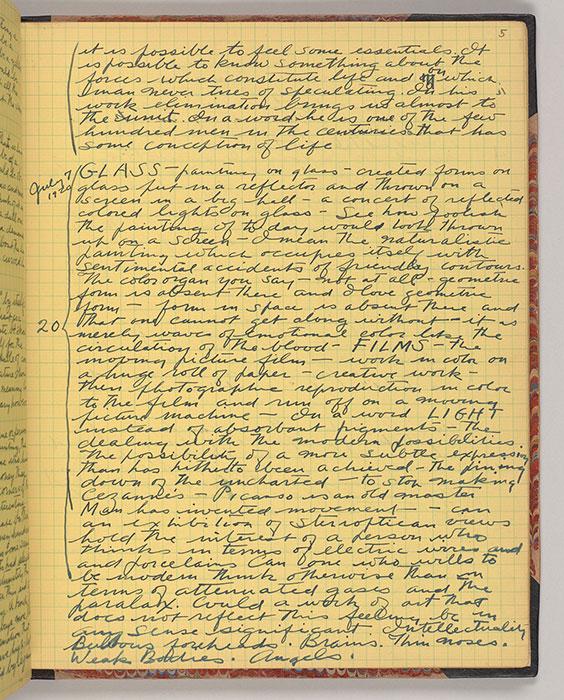 5
it is possible to feel some essentials. It
is possible to know something about the
forces which constitute life and on which
man never tires of speculating. In his
work elimination brings us almost to
the summit. In a word he is one of the few
hundred men in the centuries that has
some conception of life
July 7
GLASS - painting on glass - created forms on
glass put in a reflector and thrown on a
screen in a big hall - a concert of reflected
colored lights on glass - See how foolish
the painting of to day would look thrown
up on a screen - I mean the naturalistic
painting which occupies itself with
sentimental accidents of friendly contours.
The color organ you say - not at all - geometric
form is absent there and I love geometric
form - form in space is absent there and
20
that one cannot get along without - it is
merely waves of emotional color like the
circulation of the blood - FILMS - the
moving picture film - work in color on
a huge roll of paper - creative work -
then photographic reproduction in color
to the film and run off on a moving
picture machine - In a word LIGHT
instead of absorbant pigments - the
dealing with the modern possibilities
the possibility of a more subtle expression
than has hitherto been achieved - the pinning
down of the uncharted - to stop making
Cezannes - Picasso is an old master
Man has invented movement - can
an exhibition of steroptican views
hold the interest of a person who
thinks in terms of electric wires and
and porcelains Can one who wills to
be modern think otherwise than in
terms of attenuated gases and the
paralax. Could a work of art that
does not reflect this feeling be in
any sense significant. Intellectuality
Bulbous foreheads. Brains. Thin noses.
Weak Bodies. Angels.